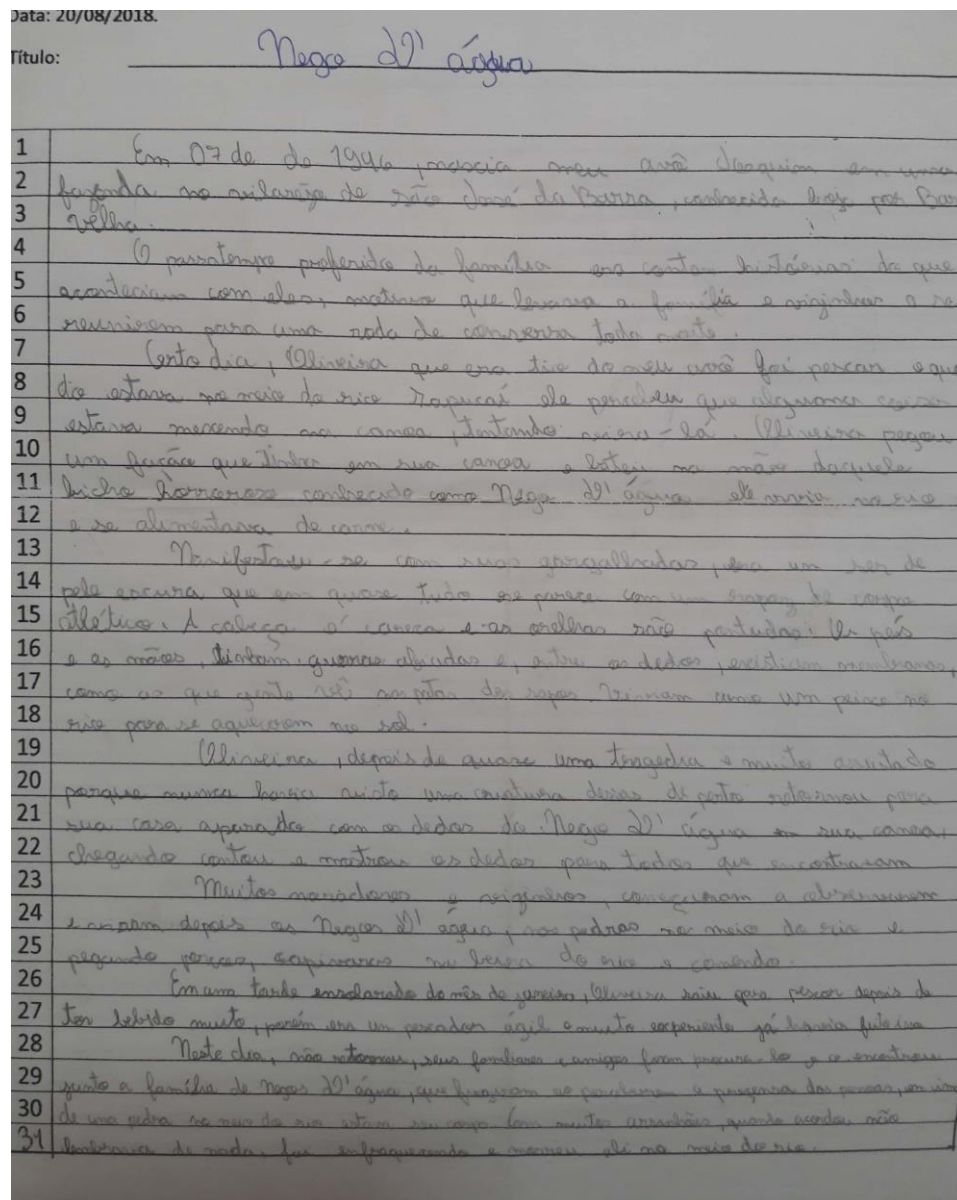 Data: 20/08/2018.
Título: Nego D'água
1 Em 07 de do 1946, nascia meu avô Joaquim em uma
2 fazenda no vilarejo de são José da Barra, conhecida hoje por Bar
3 velha.
4 O passatempo proferido da família era contar histórias do que
5 aconteciam com eles, motivo que levava a família e viginhus a se
6 reunirem para uma roda de conversa toda noite.
7 Certo dia, Oliveira que era tio do meu avô foi pescar e qua
8 do estava no meio do rio Sapucaí ele percebeu que alguma coisa
9 estava mexendo na canoa, tentando vira-lá. Oliveira pegou
10 um facão que tinha em sua canoa e boteu na mão daquele
11 bicho horroroso conhecido como Nego D'água ele vivia no rio
12 e se alimentava de carne.
13 Manifestou-se com suas gargalhadas, era um ser de
14 pele escura que em quase tudo se parece com um rapaz de corpo
15 atlético. A cabeça é careca e as orelhas são pontudas. Os pés
16 e as mãos, tinham, guerras afiadas e, entre os dedos, existiam membranas,
17 como as que gente vê nas patas dos sapos. como um peixe no
18 rio para se aquecerem no sol.
19 Oliveira, depois de quase uma tragedia e muito assustado
20 porque nunca havia visto uma criatura dessas de perto retornou para
21 sua casa com os dedos do Nego D'água sua canoa,
22 chegando contou e mostrou os dedos para todos que encontravam
23 Muitos moradores e viginhos, começaram a observarem
24 e viram depois os Negos D'água, nas pedras no meio do rio e
25 pegando peixes, capivaras na beira do rio e comendo.
26 Em um tarde ensolarado do mês de janeiro, Oliveira saiu para pescar depois de
27 ter bebido muito, porém era um pescador ágil e muito experiente já havia
28 Neste dia, não retornou, seus familiares e amigos foram procura-lo e o encontrou
29 junto a família de Negos D'água, que fugiram ao perceberem a das pessoas, em
30 de uma pedra no meio do rio estava seu corpo com muitos arranhões, quando acordou não
31 lembrava de nada, foi enfraquecendo e morreu ali no meio do rio.